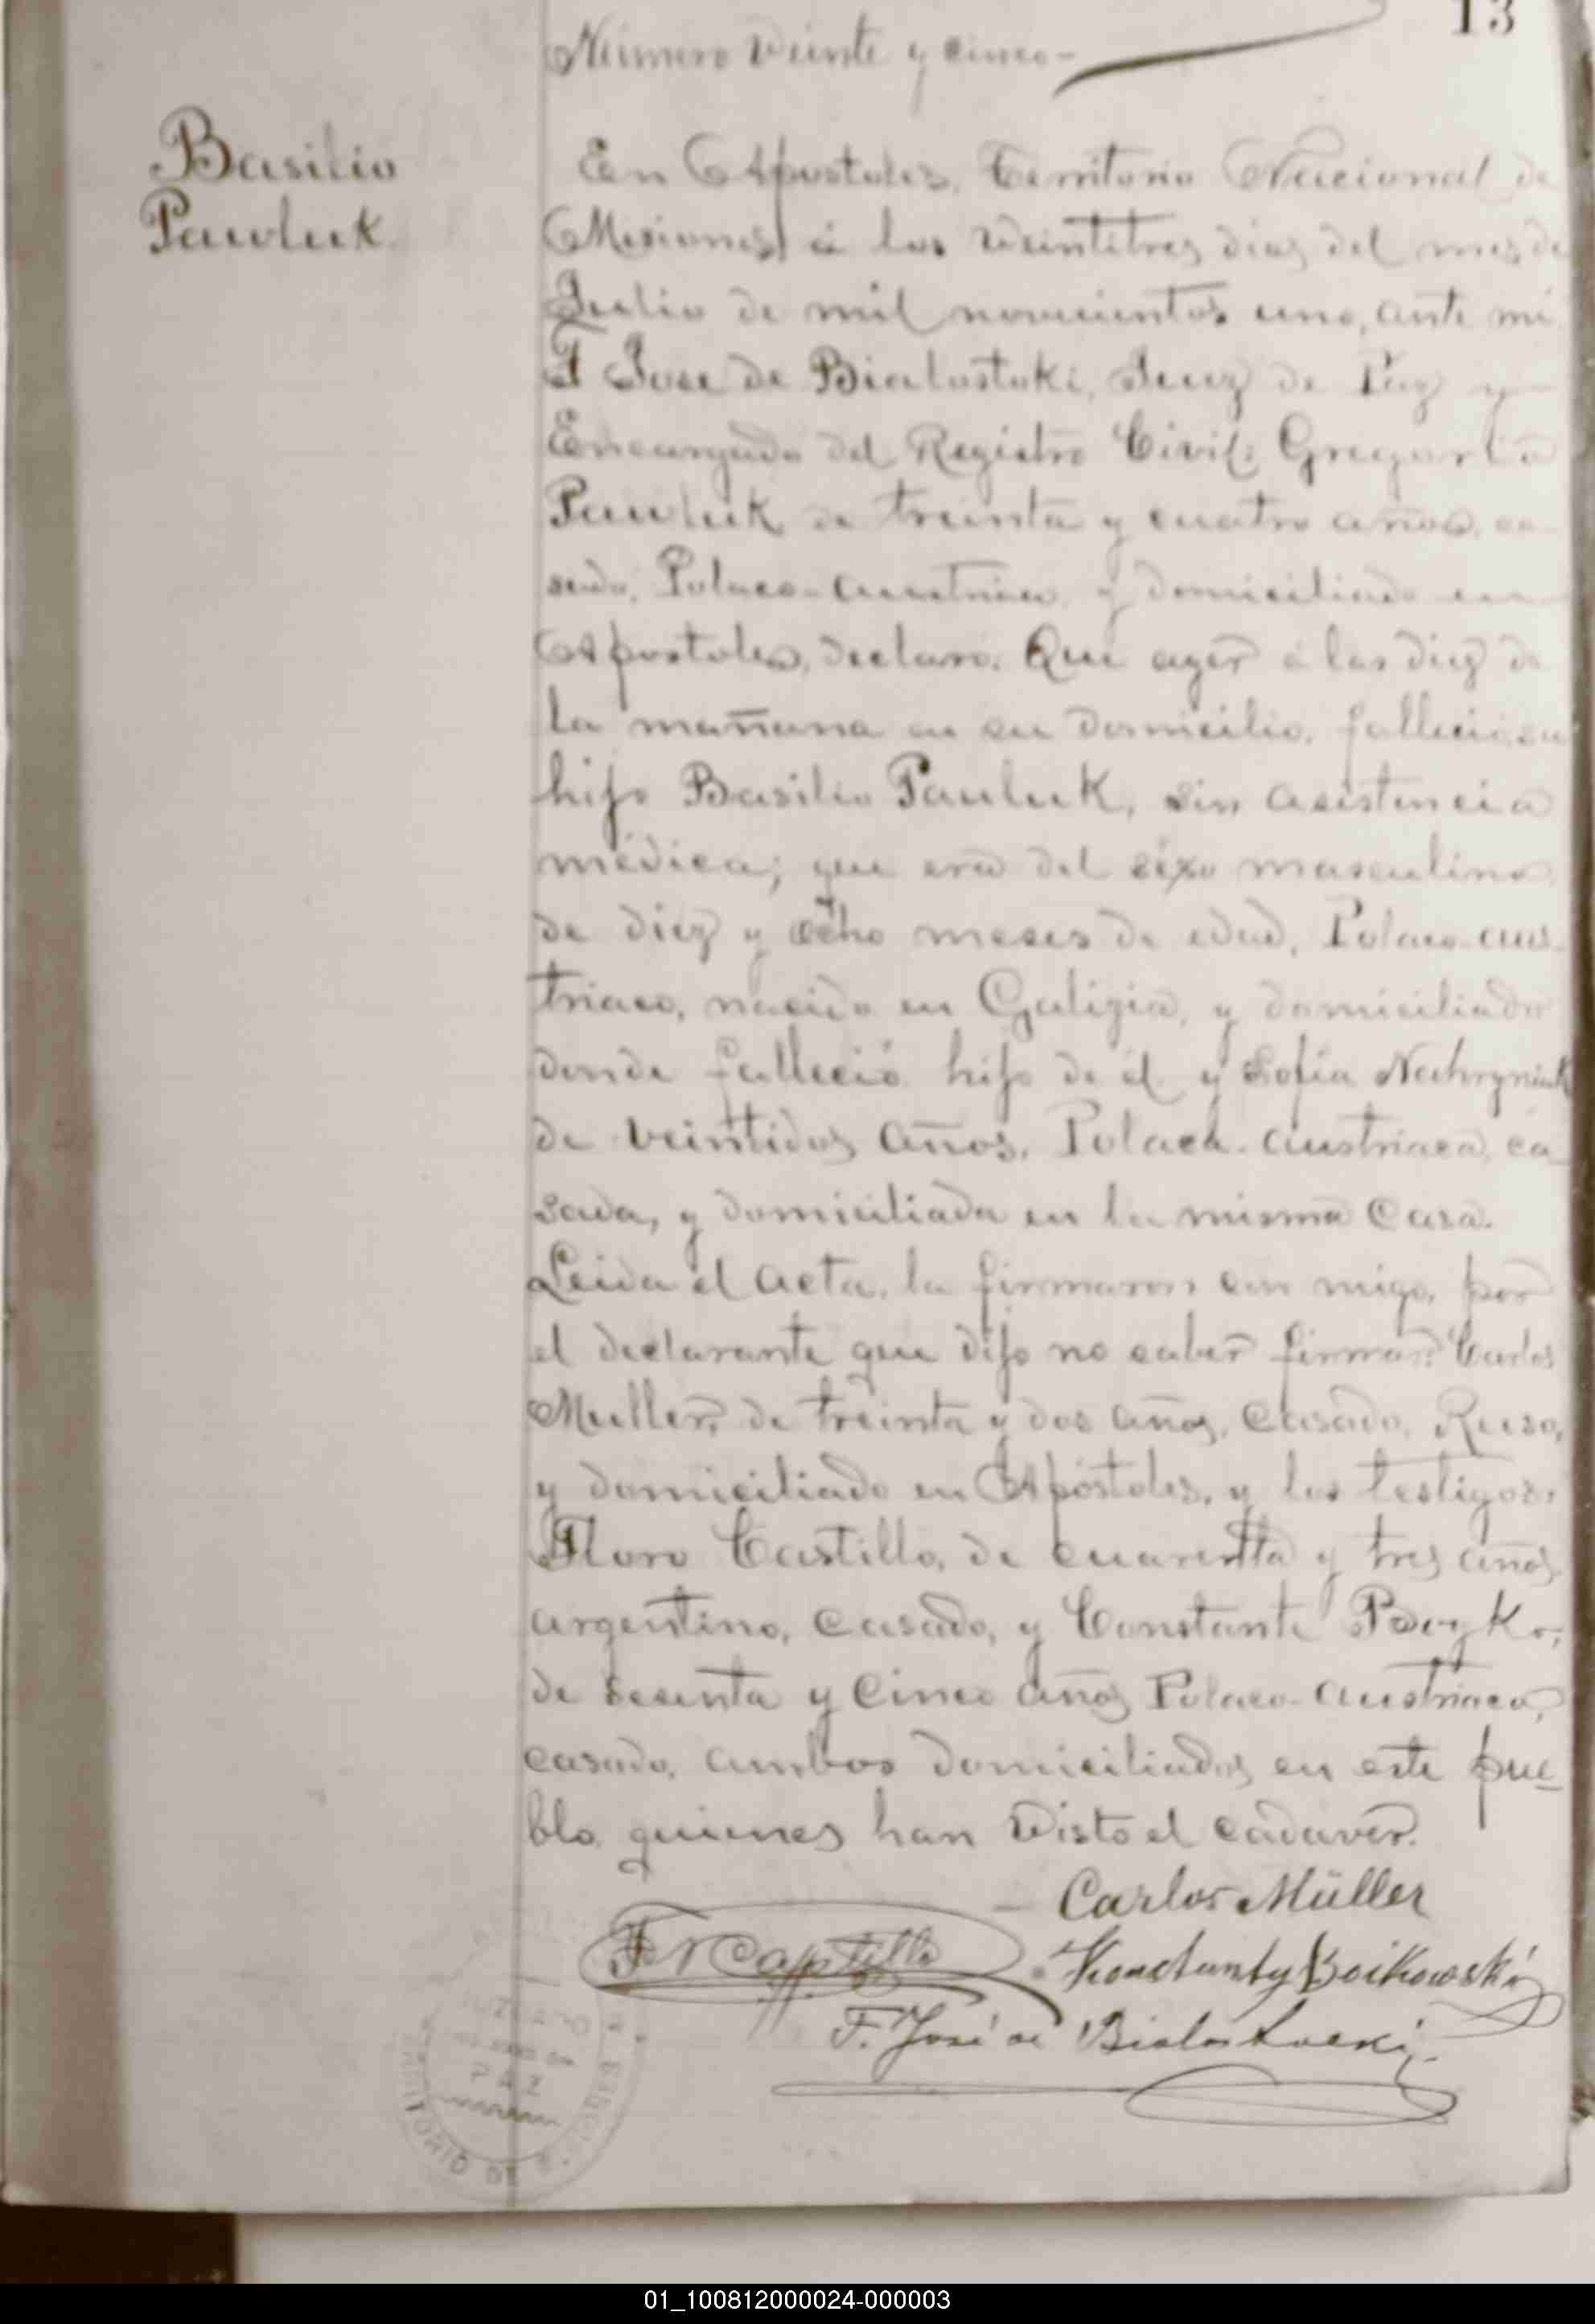 13
Número Veinte y cinco-
Basilio
Pawluk.
En Apostoles, Territorio Nacional de
Misiones, á los veintitres dias del mes de
Julio de mil novecientos uno, ante mi
F José de Bialostoki, Juez de Paz y
Encargado del Registro Civil: Gregorio
Pawluk de treinta y cuatro años, ca-
sado, Polaco-austriaco, y domiciliado en
Apostoles, declaro. Que ayer á las diez de
la mañana en su domicilio, falleció su
hijo Basilio Pauluk, sin asistencia
médica; que era del sexo masculino,
de diez y ocho meses de edad, Polaco-aus-
triaco, nacido en Galizia, y domiciliado
donde falleció hijo de él y Sofia
de veintidos años, Polaca-austriaca, ca-
sada, y domiciliada en la misma casa.
Leida el acta, la firmaron con migo, por
el declarante que dijo no saber firmar: Carlos
Muller, de treinta y dos años, casado, Ruso,
y domiciliado en Apóstoles, y los testigos:
Floro Castillo, de cuarenta y tres años
argentino, casado, y Constante
de sesenta y cinco años Polaco-austriaco,
casado, ambos domiciliados en este pue-
blo, quienes han visto el cadaver.
Carlos Müller
F Castillo
Konstanty Boikowski
F. José de Bialostocki
PAZ
TERRITORIO DE MISIONES
01_100812000024-000003